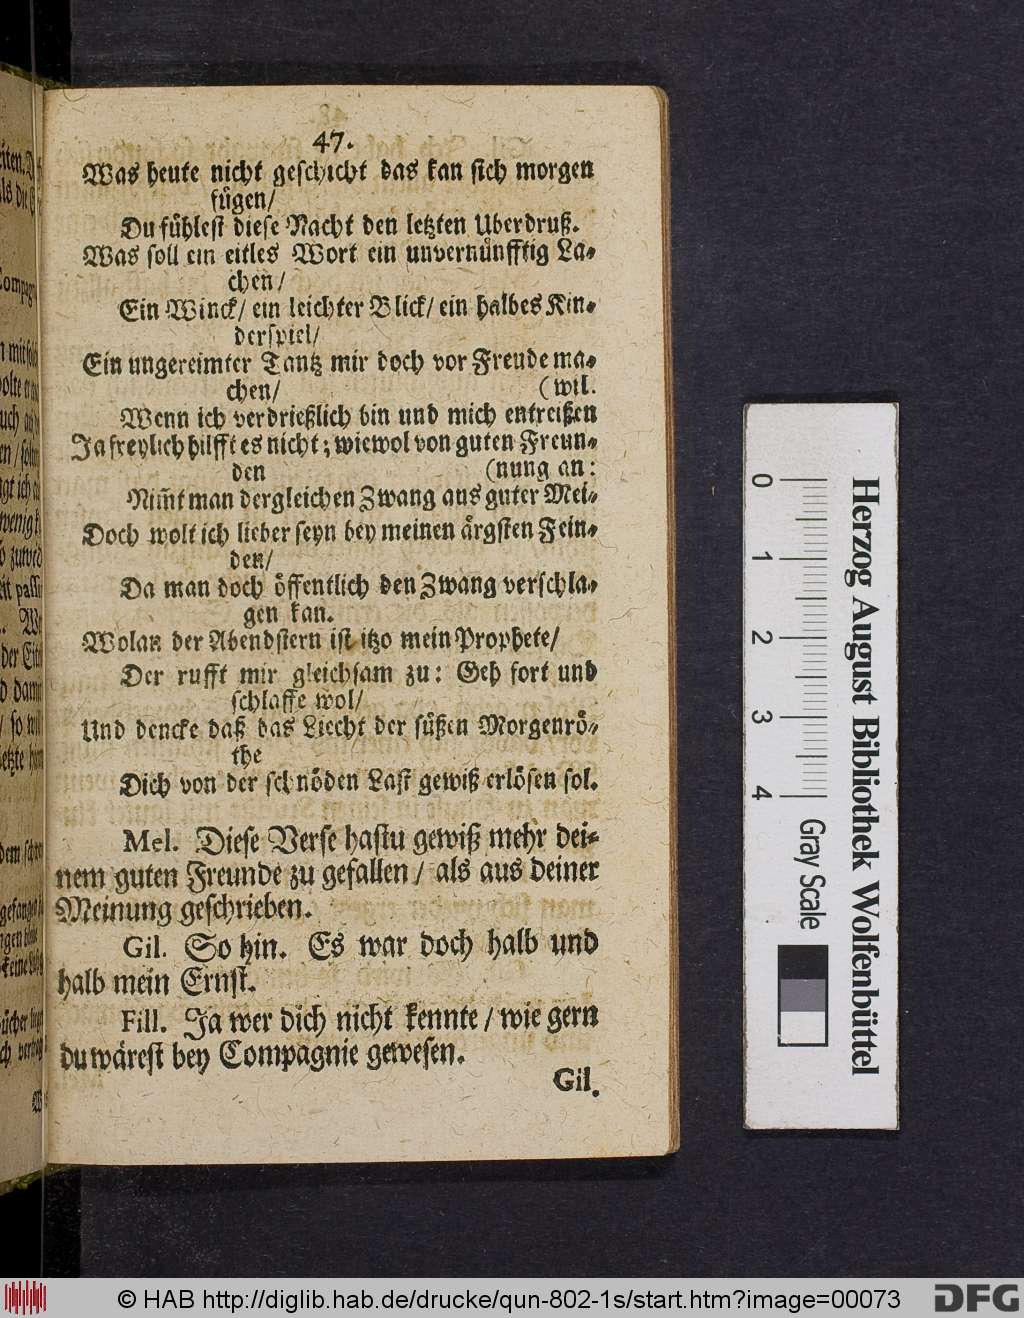 47.
Was heute nicht geschicht das kan sich morgen
fügen/
Du fühlest diese Nacht den letzten Uberdruß.
Was soll ein eitles Wort ein unvernünfftig La-
chen/
Ein Winck/ ein leichter Blick/ ein halbes Kin-
derspiel/
Ein ungereimter Tantz mir doch vor Freude ma-
chen/ (wil.
Wenn ich verdrießlich bin und mich entreißen
Ja freylich hilfft es nicht; wiewol von guten Freun-
den (nung an:
Nim̃t man dergleichen Zwang aus guter Mei-
Doch wolt ich lieber seyn bey meinen ärgsten Fein-
den/
Da man doch öffentlich den Zwang verschla-
gen kan.
Wolan der Abendstern ist itzo mein Prophete/
Der rufft mir gleichsam zu: Geh fort und
schlaffe wol/
Und dencke daß das Liecht der süßen Morgenrö-
the
Dich von der schnöden Last gewiß erlösen sol.
Mel. Diese Verse hastu gewiß mehr dei-
nem guten Freunde zu gefallen/ als aus deiner
Meinung geschrieben.
Gil. So hin. Es war doch halb und
halb mein Ernst.
Fill. Ja wer dich nicht kennte/ wie gern
du wärest bey Compagnie gewesen.
Gil.
0 1 2 3 4
Gray Scale
Herzog August Bibliothek Wolfenbüttel
© HAB http://diglib.hab.de/drucke/qun-802-1s/start.htm?image=00073
DFG